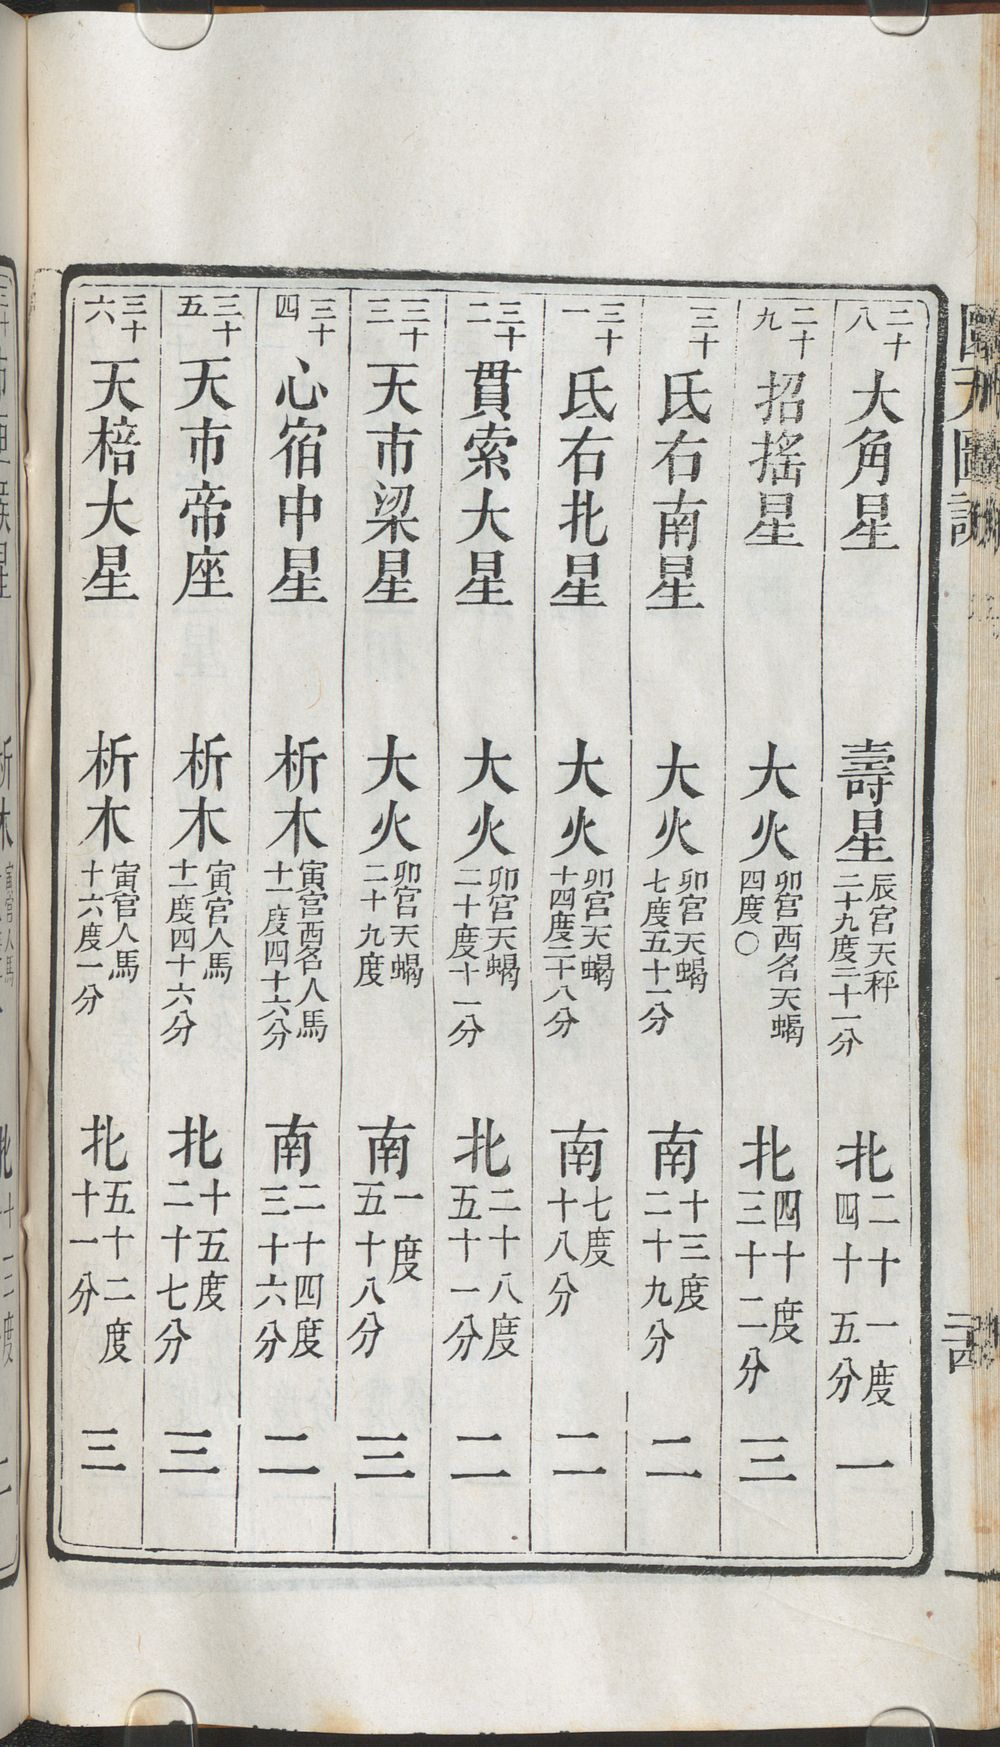 二十八 大角星 壽星 辰宮天秤二十九度二十一分 北二十一度四十五分 一
二十九 招搖星 大火 卯宮西名天蝎四度〇 北四十度三十二分 三
三十 氐右南星 大火 卯宮天蝎七度五十一分 南十三度二十九分 二
三十一 氐右北星 大火 卯宮天蝎十四度二十八分 南七度十八分 二
三十二 貫索大星 大火 卯宮天蝎二十度十一分 北二十八度五十一分 二
三十三 天市梁星 大火 卯宮天蝎二十九度 南一度五十八分 三
三十四 心宿中星 析木 寅宮西名人馬十一度四十六分 南二十四度三十六分 二
三十五 天市帝座 析木 寅宮人馬十一度四十六分 北十五度二十七分 三
三十六 天棓大星 析木 寅宮人馬十六度一分 北五十二度十一分 三